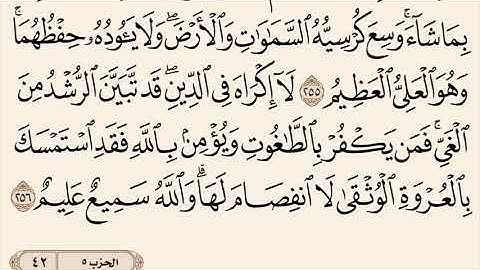 بِمَا شَآءَۚ وَسِعَ كُرۡسِيُّهُ ٱلسَّمَٰوَٰتِ وَٱلۡأَرۡضَۖ وَلَا يَـُٔودُهُۥ حِفۡظُهُمَاۚ
وَهُوَ ٱلۡعَلِيُّ ٱلۡعَظِيمُ ٢٥٥ لَآ إِكۡرَاهَ فِي ٱلدِّينِۖ قَد تَّبَيَّنَ ٱلرُّشۡدُ مِنَ
ٱلۡغَيِّۚ فَمَن يَكۡفُرۡ بِٱلطَّٰغُوتِ وَيُؤۡمِنۢ بِٱللَّهِ فَقَدِ ٱسۡتَمۡسَكَ
بِٱلۡعُرۡوَةِ ٱلۡوُثۡقَىٰ لَا ٱنفِصَامَ لَهَاۗ وَٱللَّهُ سَمِيعٌ عَلِيمٌ ٢٥٦
الحزب ٥ ٤٢